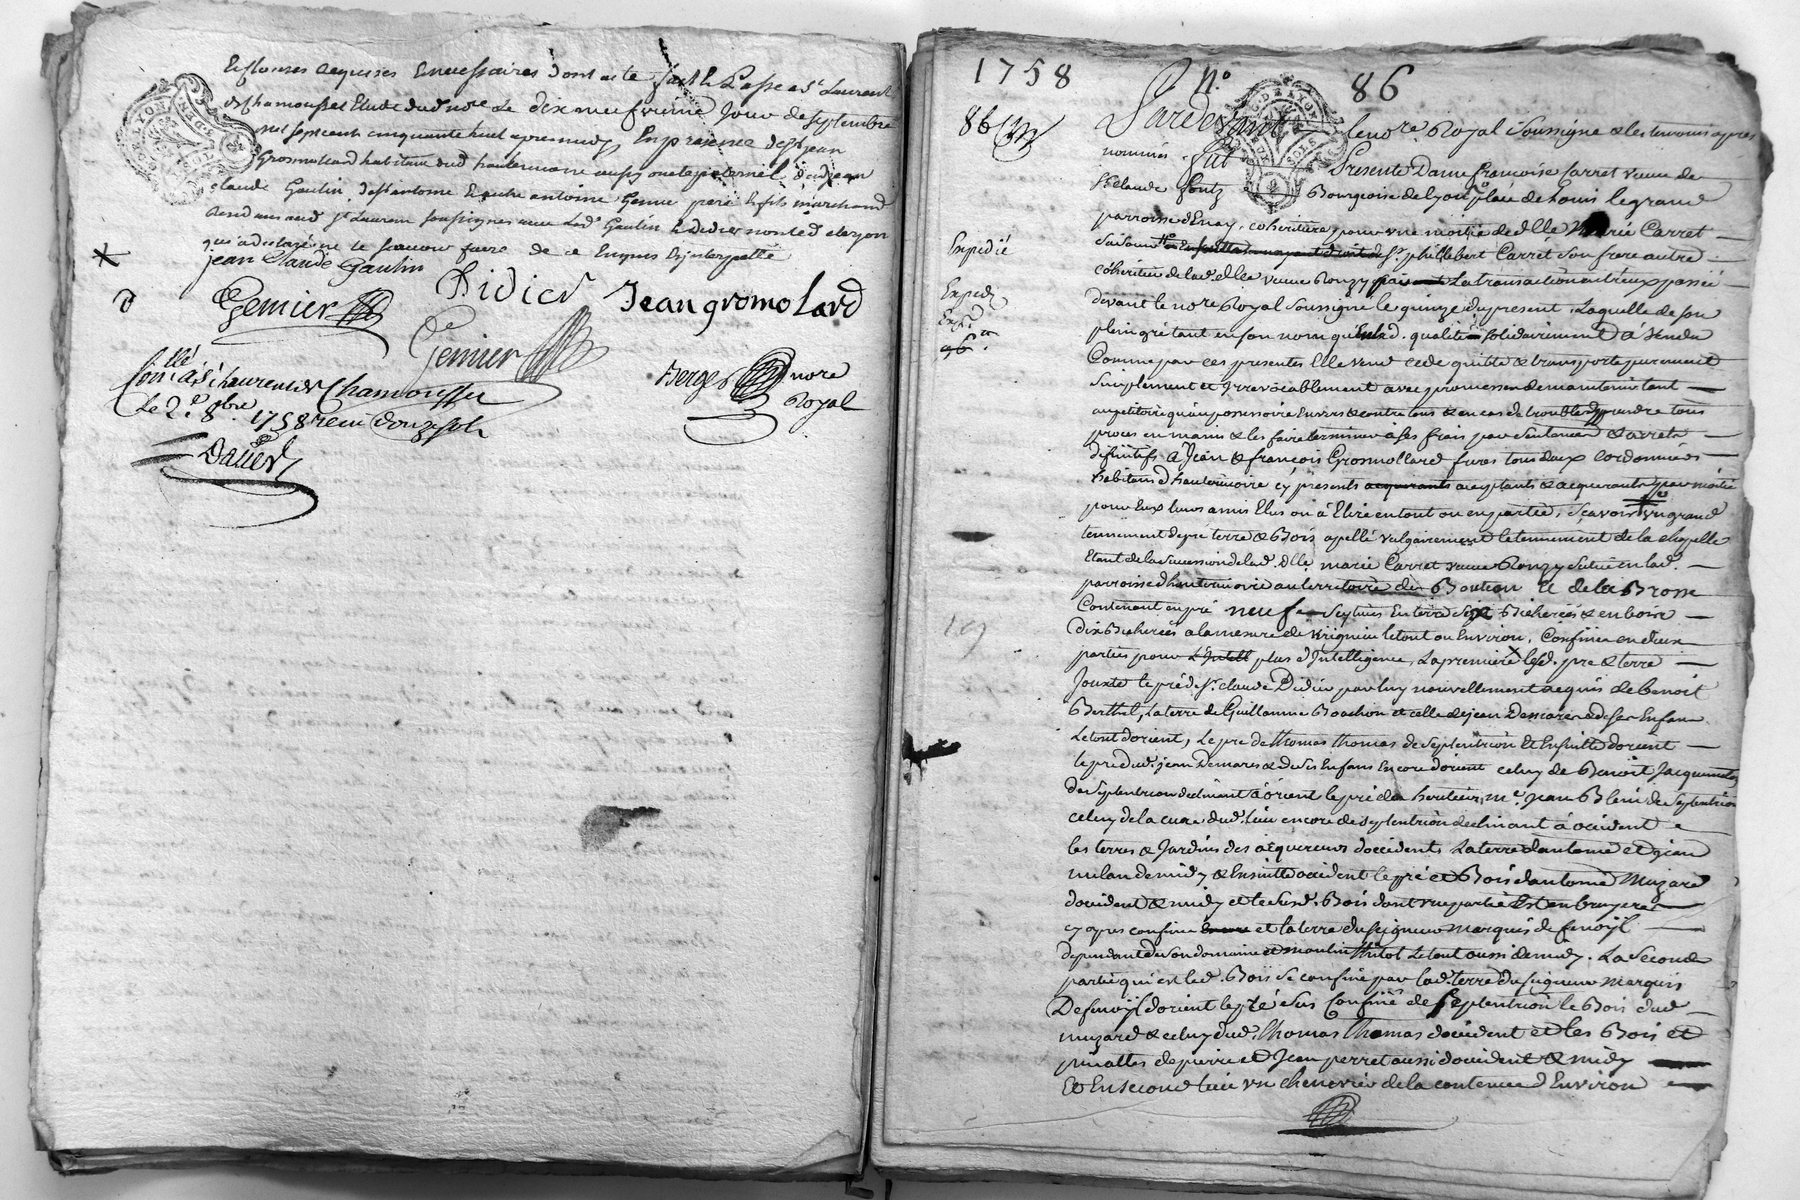 Et clauses requises & necessaires dont acte fait & Passé a St Laurent
de Chamousset Etude dud. nore Le dix neufvieme Jour de septembre
mil sept cent cinquante huit apres midy, En presence de sr jean
Grosmollard habitant dud hauterivoire
claude Gaulin antoine Genier pere & fils marchand
aud St Laurent soussignés avec Led. Gaulin & Didier
ne le scavoir faire de ce Enquis & interpellé
jean Claude Gaulin
Didier Jean gromolard
Genier
Genier
Berge nore
Royal
Conlé a St Laurent de Chamousset
Le 2e 8bre 1758 receu douze sols
1758 No. 86
86
Pardevant le nore Royal Soussigné & les temoins apres
nommés. fut Presente Dame françoise Carret veuve de
Sr claude Bourgeoise de Lyon place de Louis le grand
parroisse d'Enay, cohéritiere pour une moitié de dlle Marie Carret
Expedié
Sr philibert Carret son frere autre
cohéritier de lad. dlle veuve Ronzy La transaction entr'eux passée
Expedié
devant le nore Royal Soussigné le quinze du present, Laquelle de son
plein gré tant en son nom qu'En lad. qualité solidairement a Vendu
Comme par ces presentes Elle vend cede quitte & transporte purement
Simplement et Irrevocablement avec promesse de maintenir tant
au petitoire qu'au possessoire Envers & contre tous & en cas de trouble d'y prendre tous
proces en mains & les faire terminer à ses frais par Sentences & arrets
deffinitifs a Jean & françois Grosmollard freres tous deux Cordonniers
habitans d'hauterivoire cy presents acquerants acceptants & acquerants par moitié
pour Eux leurs amis Elus ou à Elire en tout ou en partie, Sçavoir un grand
tennement de pré terre & Bois apellé vulgairement le tennement de la chapelle
Etant de la succession de lad. dlle marie Carret veuve Ronzy Situé en lad.
parroisse d'hauterivoire au territoire de Boution Et de la Brosse
Contenant en pré neuf Seytives En terre Bicherées & en bois
dix Bicherées a la mesure de le tout ou Environ, Confiné en deux
parties pour L'Intell plus d'Intelligence, La premiere led. pré & terre
Jouxte le pré de Sr. claude Didier par luy nouvellement acquis de benoit
Berthet, La terre de Guillaume Boachon et celle de jean Demares & de ses Enfans
Le tout d'orient, Le pré de thomas thomas de Septentrion Et Ensuitte d'orient
le pré dud. jean Demares & de ses Enfans Encore d'orient celuy de Benoit
de Septentrion declinant à orient le pré des heritiers Me. jean de Septentrion
celuy de la cure dud. lieu encore de Septentrion declinant à occident
les terres & Jardins des acquereurs d'occident, La terre d'antoine et jean
milan de midy & Ensuitte occident le pré et Bois d'antoine Muzard
d'occident & midy et le susd. Bois dont une partie Est en bruyeres
cy apres confiné et la terre du seigneur Marquis de fenoÿl
dependante de son domaine et moulin Le tout aussi de midy. La Seconde
partie qui est led. Bois se confine par lad. terre du seigneur Marquis
De fenoÿl d'orient le pré sus Confiné de Septentrion le Bois dud.
muzard & celuy dud. Thomas Thomas d'occident et les Bois et
de pierre et Jean perret aussi d'occident & midy
Et En second lieu un chenevier de la contenue d'Environ